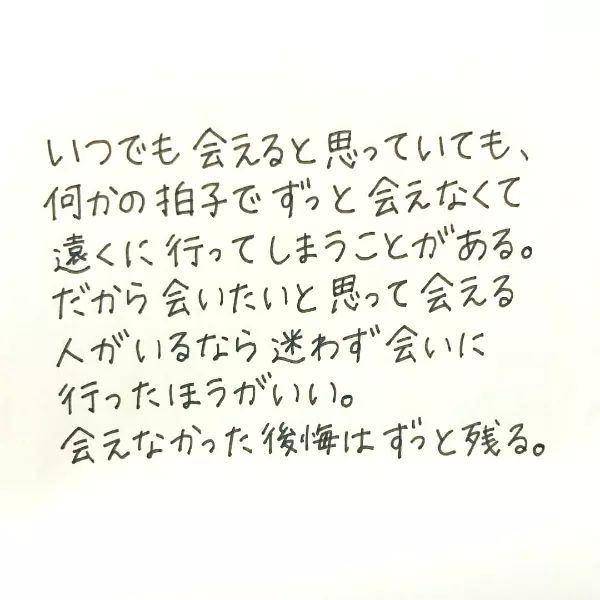 いつでも会えると思っていても、
何かの拍子でずっと会えなくて
遠くに行ってしまうことがある。
だから会いたいと思って会える
人がいるなら迷わず会いに
行ったほうがいい。
会えなかった後悔はずっと残る。